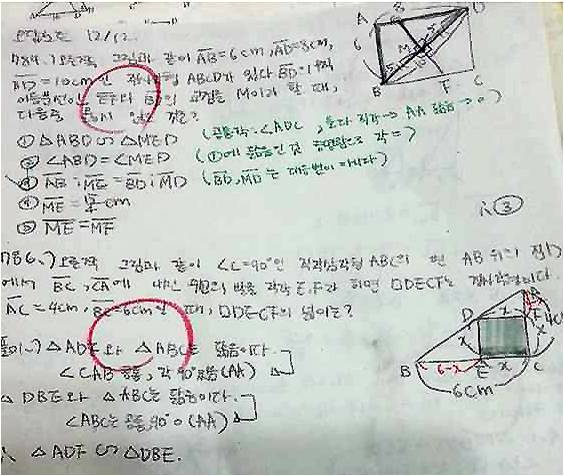 오답노트 12/12.
784.) 오른쪽 그림과 같이 AB=6cm, AD=8cm,
BD=10cm인 직사각형 ABCD가 있다. BD의 수직
이등분선인 EF와 BD의 교점을 M이라 할 때,
다음 중 옳지 않은 것은?
① △ABD∽△MED (공통각: ∠ADC, 둘다 직각→AA 닮음→○)
② ∠ABD=∠MED (①에 닮음인 것 증명함으로 각=)
③ AB:ME=BD:MD (BD, MD는 대응변이 아니다)
④ ME=15/4cm
⑤ ME=MF
∴ ③
A
B
6
M
E
F
C
D
786.) 오른쪽 그림과 같이 ∠C=90°인 직각삼각형 ABC의 변 AB 위의 점 D
에서 BC, CA에 내린 수선의 발을 각각 E, F라 하면 □DECF는 정사각형이다.
AC=4cm, BC=6cm일 때, □DECF의 넓이는?
풀이) △ADF와 △ABC는 닮음이다.
∠CAB 공통, 각 90° 닮음 (AA)
△DBE와 △ABC는 닮음이다.
∠ABC는 공통, 90° (AA)
∴ △ADF∽△DBE.
A
D
F
x
4cm
B
6-x
E
x
C
6cm